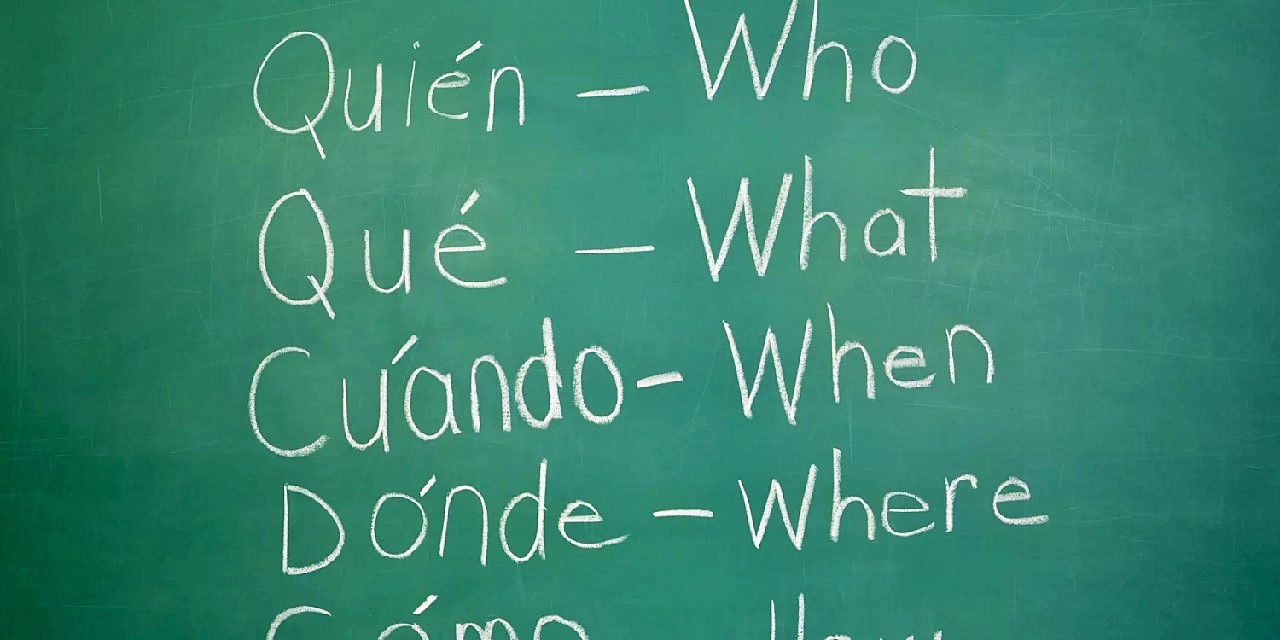 Quién – Who
Qué – What
Cuándo - When
Dónde – Where
Cómo How